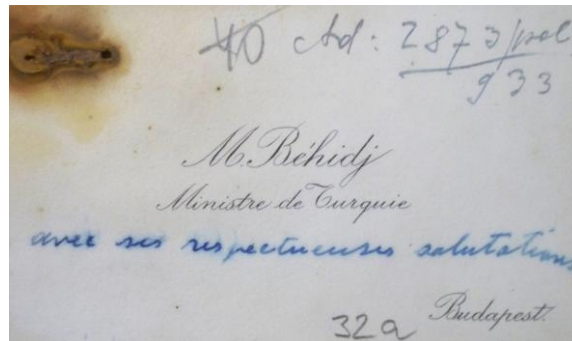 40 Ad: 2873/pol
933
M. Béhidj
Ministre de Turquie
avec ses respectueuses salutations
Budapest.
32a